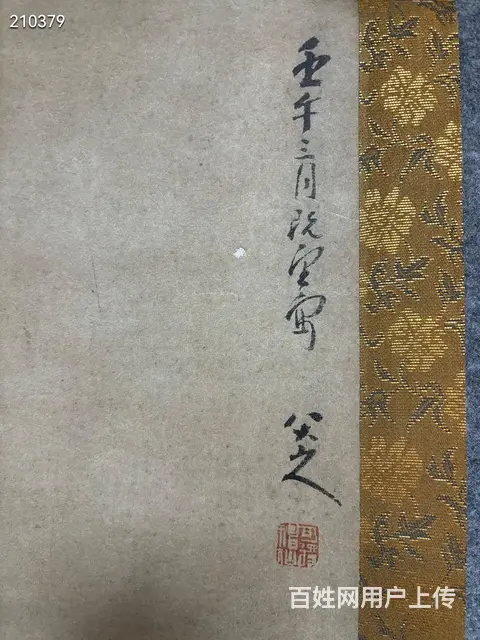 210379
壬午三月既望寫
八大山人
百姓网用户上传